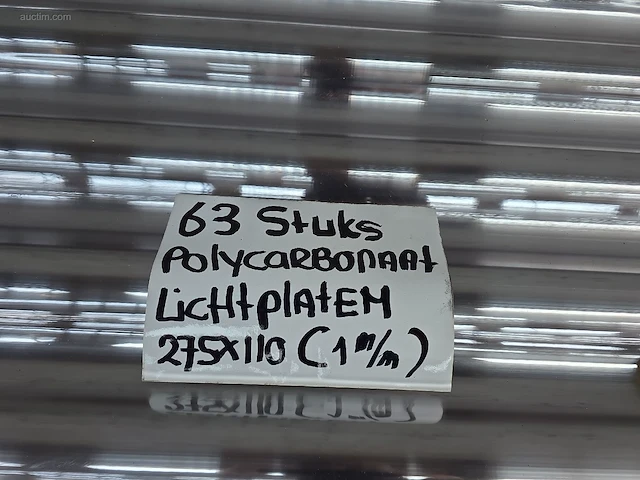 auctim.com
63 Stuks
POLYCARBONAAt
LiCHtplAtEN
275X110 (1 m/m)